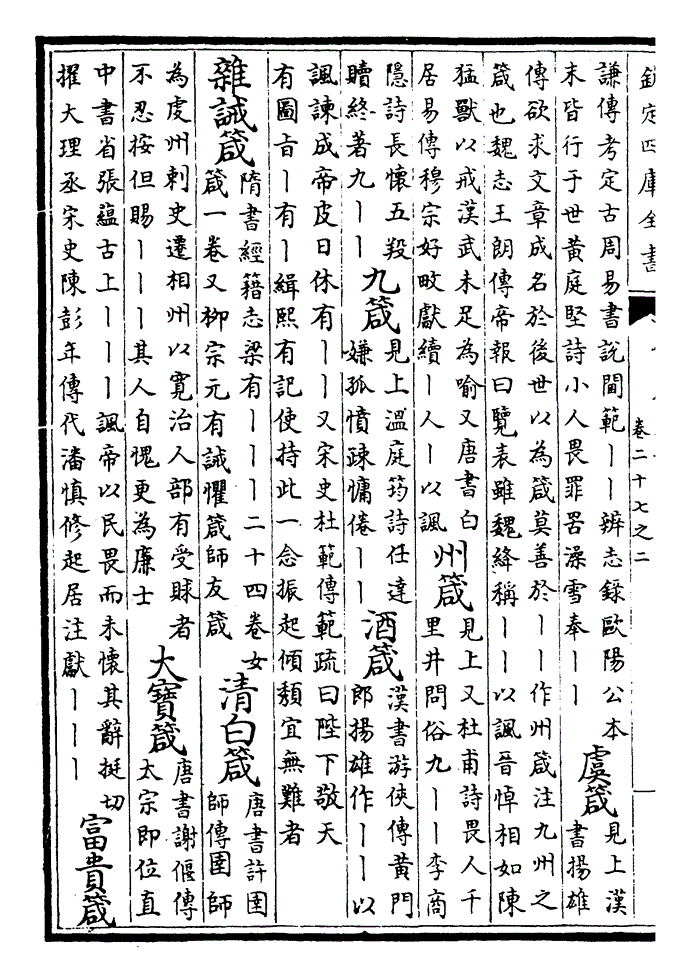 欽定四庫全書
卷二十七之二
謙傳考定古周易書說閫範丨丨辨志錄歐陽公本
末皆行于世黃庭堅詩小人畏罪罟澡雪奉丨丨
虞箴
見上漢
書揚雄
傳欲求文章成名於後世以為箴莫善於丨丨作州箴注九州之
箴也魏志王朗傳帝報曰覽表雖魏絳稱丨丨以諷晉悼相如陳
猛獸以戒漢武未足為喻又唐書白
居易傳穆宗好畋獻續丨人丨以諷
州箴
見上又杜甫詩畏人千
里井問俗九丨丨李商
隱詩長懷五羖
贖終著九丨丨
九箴
見上溫庭筠詩任達
嫌孤憤疎慵倦丨丨
酒箴
漢書游俠傳黃門
郎揚雄作丨丨以
諷諫成帝皮日休有丨丨又宋史杜範傳範疏曰陛下敬天
有圖旨丨有丨緝熙有記使持此一念振起傾頹宜無難者
雜誡箴
隋書經籍志梁有丨丨丨二十四卷女
箴一卷又柳宗元有誡懼箴師友箴
清白箴
唐書許圉
師傳圉師
為虔州刺史遷相州以寬治人部有受賕者
不忍按但賜丨丨丨其人自愧更為廉士
大寶箴
唐書謝偃傳
太宗即位直
中書省張蘊古上丨丨丨諷帝以民畏而未懷其辭挺切
擢大理丞宋史陳彭年傳代潘慎修起居注獻丨丨丨
富貴箴